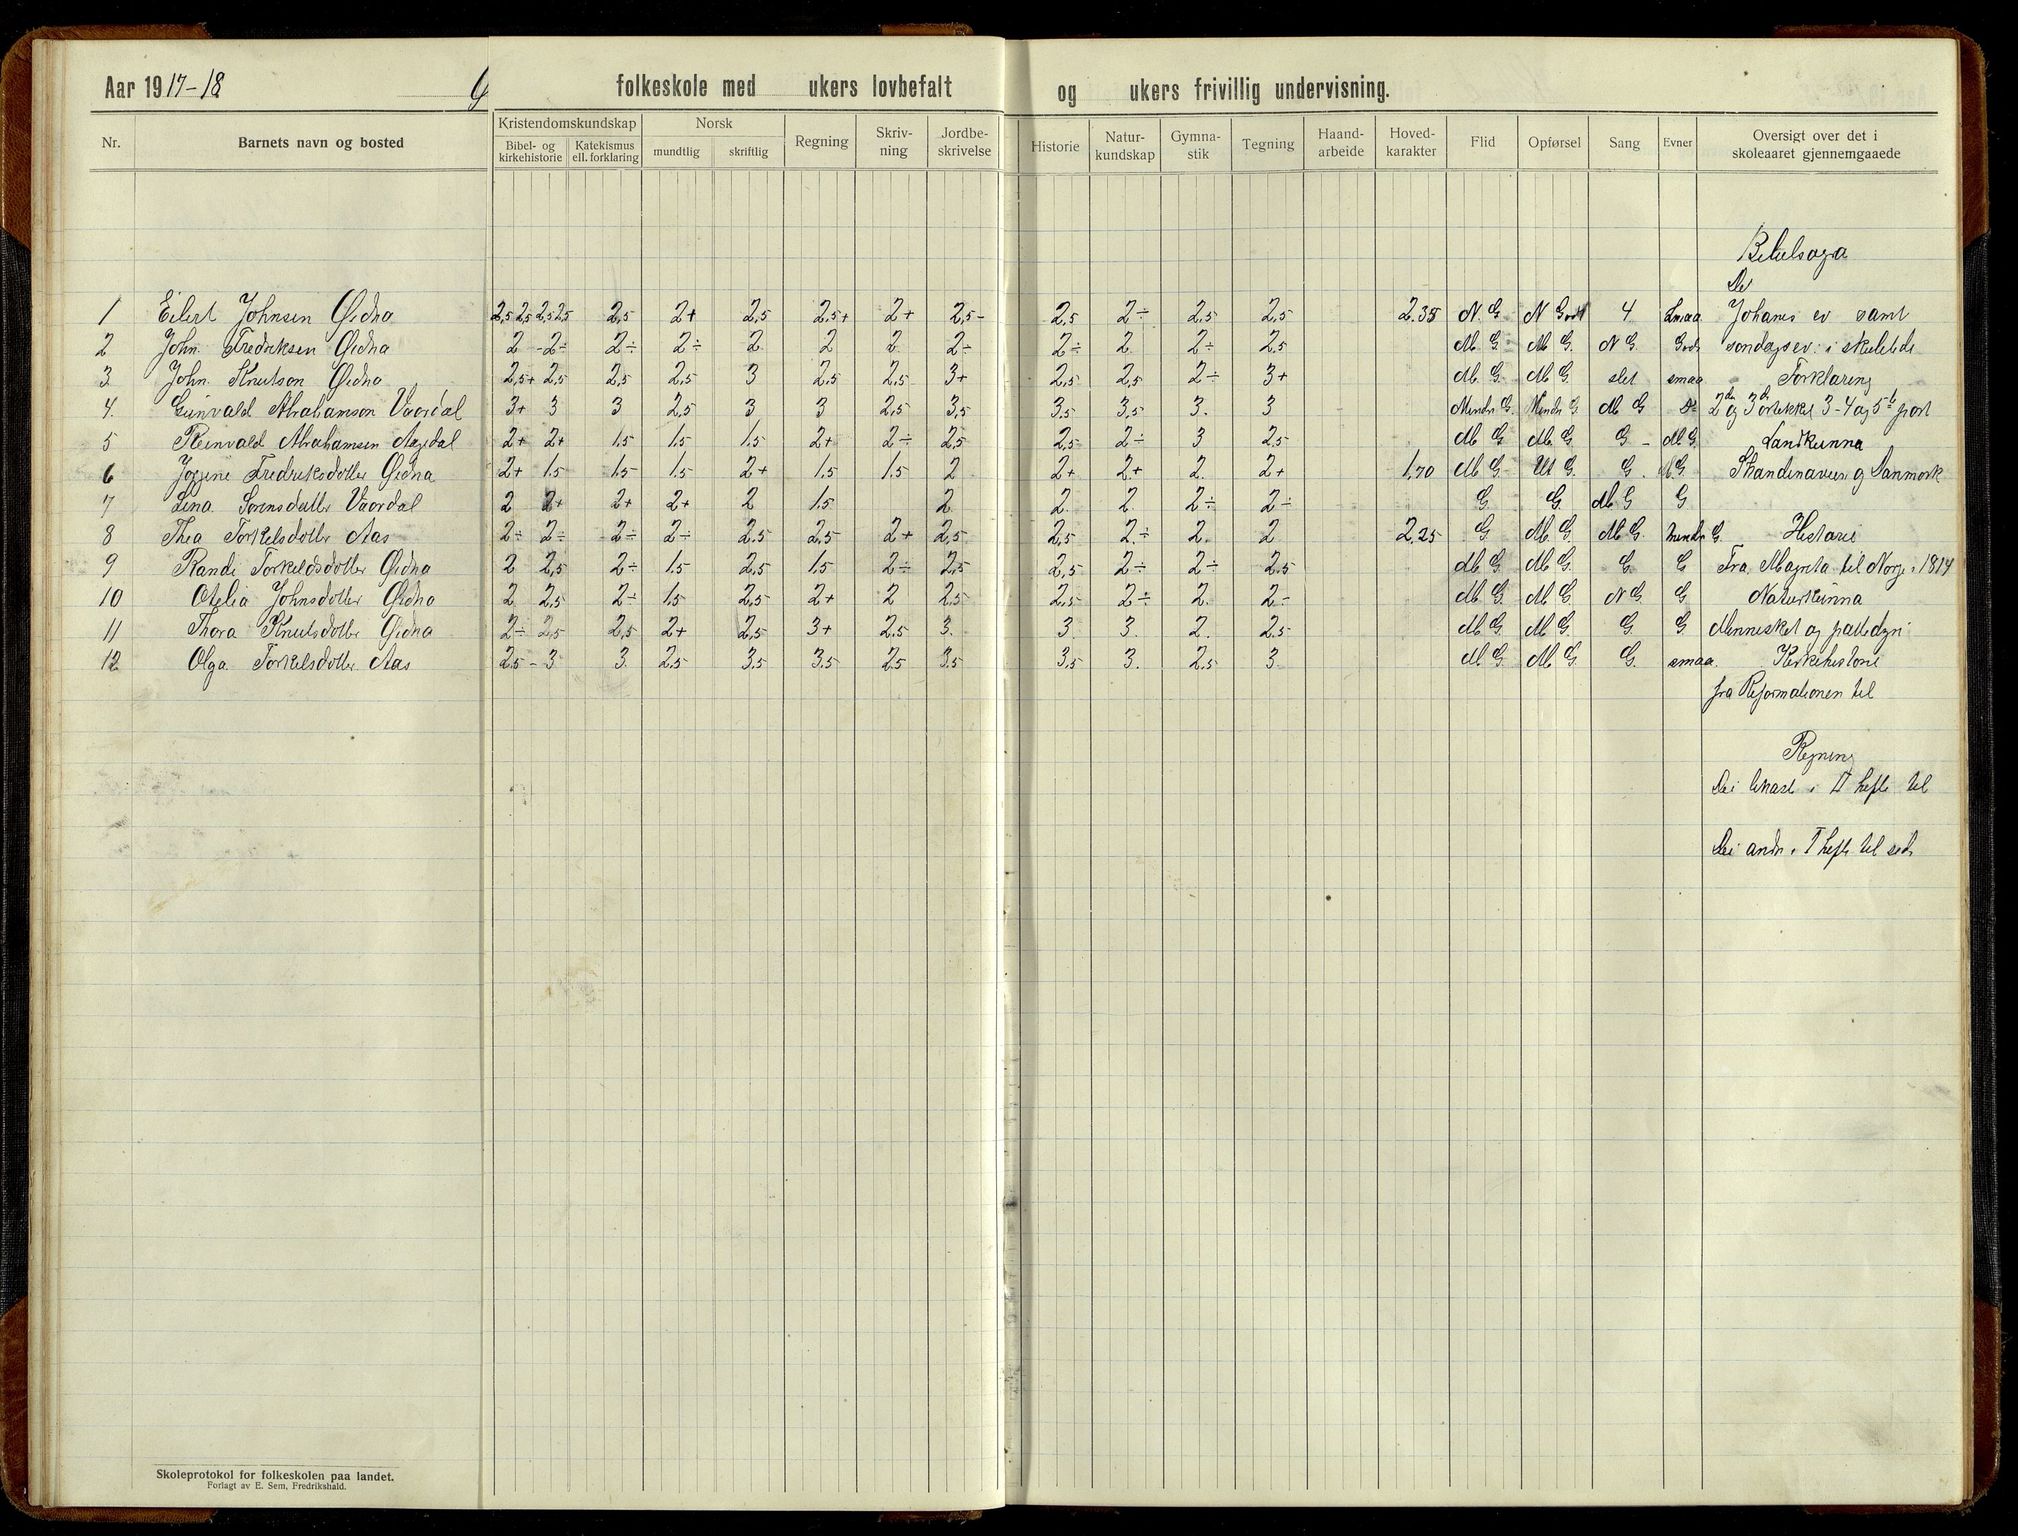 Aar 1917-18 G folkeskole med ukers lovbefalt og ukers frivillig undervisning.
Nr. Barnets navn og bosted Kristendomskundskap Bibel- og kirkehistorie Katekismus ell. forklaring Norsk mundtlig skriftlig Regning Skriv-ning Jordbe-skrivelse Historie Natur-kundskap Gymna-stik Tegning Haand-arbeide Hoved-karakter Flid Opførsel Sang Evner Oversigt over det i skoleaaret gjennemgaaede
Bibelsoga
De
1 Eilert Johnsen Øidna 2,5 2,5 2,5 2,5 2,5 2+ 2,5 2,5+ 2+ 2,5- 2,5 2÷ 2,5 2,5 2.35 N. G N Godt 4 Smaa Johanes ev samt
2 John. Fredriksen Øidna 2 -2÷ 2÷ 2÷ 2 2 2 2÷ 2÷ 2. 2÷ 2.5 M. G. M G. N G. Godt søndagsev: i skuletide
3. John. Knutson Øidna 2,5+ 2,5 2,5 2,5 3 2,5 2,5 3+ 2,5 2,5 2÷ 3+ M. G. M G. slet smaa Forklaring
4. Gunvald Abrahamson Vaordal 3+ 3 3 2,5 3 3 2,5 3,5 3,5 3,5 3. 3 Mindr G. Mindr G M G D° 2den og 3d Fortekkel 3-4 og 5t part
5 Reinvald Abrahamsen Aagdal 2+ 2+ 1.5 1.5 1.5 2+ 2÷ 2,5 2,5 2÷ 3 2.5 M G M. G G - M G Landkunna
6 Jorine Fredriksdotter Øidna 2+ 1.5 1.5 1.5 2+ 1.5 1.5 2 2+ 2+ 2. 2+ 1,70 M G. Ut G. G. M.G Skandinavien og Danmork
7 Lina. Sørensdotter Vaordal 2 2+ 2+ 2+ 2 1.5 2 2. 2. 2÷ 2÷ G. G. M G G
8 Thea Torkelsdotter Aas 2÷ 2÷ 2÷ 2÷ 2.5 2,5 2+ 2,5 2,5 2÷ 2. 2 2,25 G M G. M G. Mindr G. Historie
9 Randi Torkeldsdotter Øidna 2 2,5 2÷ 1.5 2,5 1.5 2÷ 2,5 2,5 2÷ 2÷ 2.5 M G M G. G. G Fra Magreta til Norge i 1814
10 Otelia Johnsdotter Øidna 2 2,5 2÷ 1.5 2,5 2+ 2 2.5 2.5 2÷ 2. 2- M G. M G. N G. G Naturkunna
11 Thora Knutsdotter Øidna 2÷ 2,5 2,5 2+ 2,5 3+ 2.5 3. 3. 3. 2. 2.5 M G. M G. G. G. Mennesket og pattedyri
12 Olga. Torkelsdotter Aas 2,5 - 3 3. 2,5 3,5 3.5 2,5 3.5 3,5 3. 2.5 3. M G M G G. smaa. Kirkehistorie
fra Reformationen til
Regning
Dei likast i II hefte til
Dei andre i I hefte til sid.
Skoleprotokol for folkeskolen paa landet.
Forlagt av E. Sem, Fredrikshald.